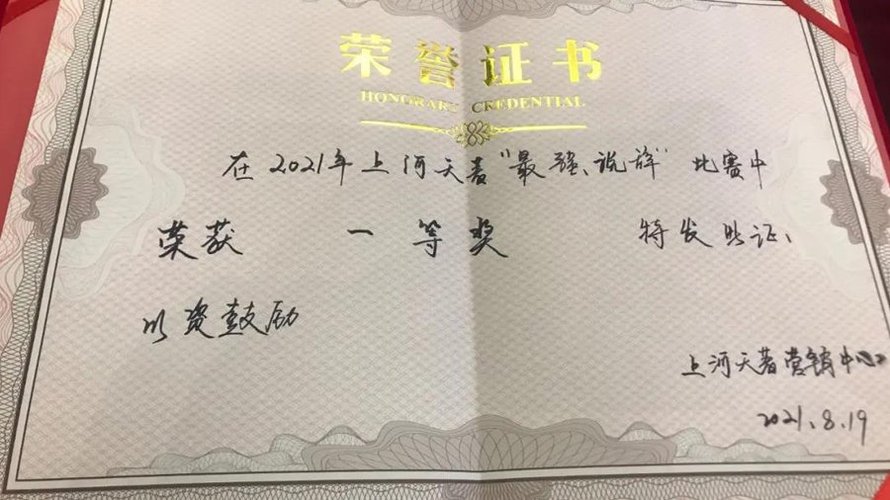 荣誉证书
HONORARY CREDENTIAL
在2021年上河天著"最强、说辞"比赛中
荣获 一等奖 特发此证、
以资鼓励
上河天著营销中心
2021.8.19